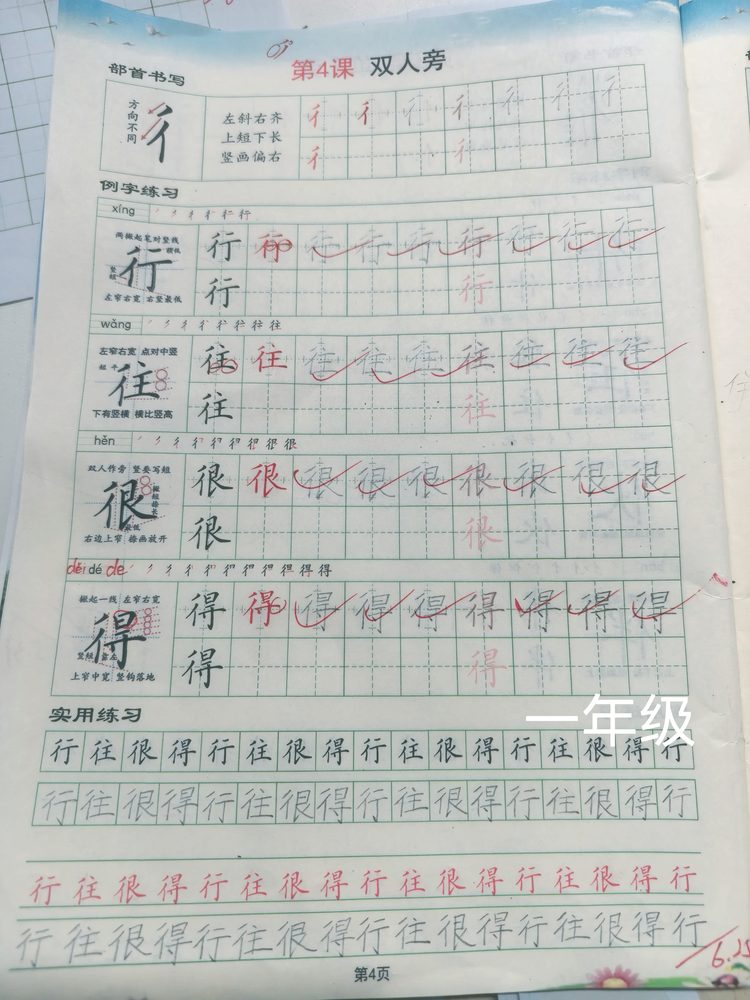 第4课 双人旁
部首书写
方向不同
彳
左斜右齐
上短下长
竖画偏右
彳 彳 彳 彳 彳 彳 彳
彳 彳
例字练习
xíng
两撇起笔对竖线
行
左窄右宽 右竖最低
行 行 行 行 行 行 行 行 行
行 行
wǎng
左窄右宽 点对中竖
往
下有竖横 横比竖高
往 往 往 往 往 往 往 往 往
往 往
hěn
双人作旁 竖要写短
很
右边上窄 捺画放开
很 很 很 很 很 很 很 很 很
很 很
děi dé de
撇起一线 左窄右宽
得
上窄中宽 竖钩落地
得 得 得 得 得 得 得 得 得
得 得
实用练习
一年级
行往很得行往很得行往很得行往很得行
行往很得行往很得行往很得行往很得行
行往很得行往很得行往很得行往很得行
行往很得行往很得行往很得行往很得行
第4页